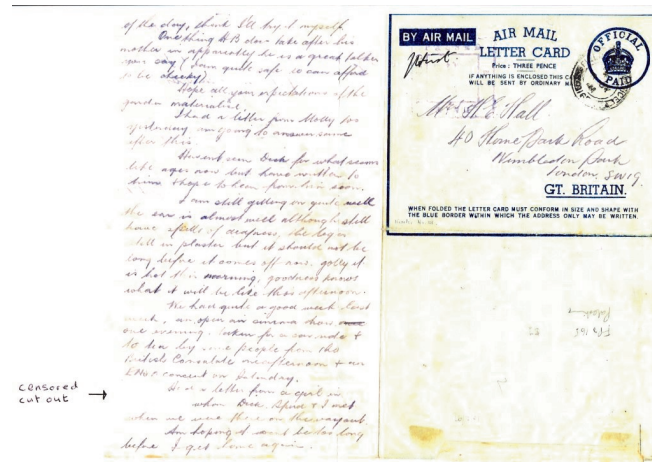 of the day, think I'll try it myself.
One thing H B don't take after his
mother in apparently he is a great talker
you say? (am quite safe so can afford
to be cheeky).
Hope all your expectations of the
garden materialise.
I had a letter from Molly too
yesterday am going to answer same
after this.
Haven't seen Dick for what seems
like ages now but have written to
him & hope to hear from him soon.
I am still getting on quite well
the ear is almost well although still
have spells of deafness, the leg is
still in plaster but it should not be
long before it comes off now, golly it
is hot this morning, goodness knows
what it will be like this afternoon.
We had quite a good week last
week, an open air cinema show
one morning, taken for a car ride &
to tea by some people from the
British Consulate one afternoon & an
ENSA concert on Saturday.
Had a letter from a girl in
whom Dick, Spud & I met
when we were there on the way out.
Am hoping it won't be too long
before I get home again.
censored
cut out
BY AIR MAIL
AIR MAIL
LETTER CARD
Price: THREE PENCE
IF ANYTHING IS ENCLOSED THIS C
WILL BE SENT BY ORDINARY M
OFFICIAL
PAID
Mrs H.E. Hall
40 Home Park Road
Wimbledon Park
London, SW19.
GT. BRITAIN.
WHEN FOLDED THE LETTER CARD MUST CONFORM IN SIZE AND SHAPE WITH
THE BLUE BORDER WITHIN WHICH THE ADDRESS ONLY MAY BE WRITTEN.